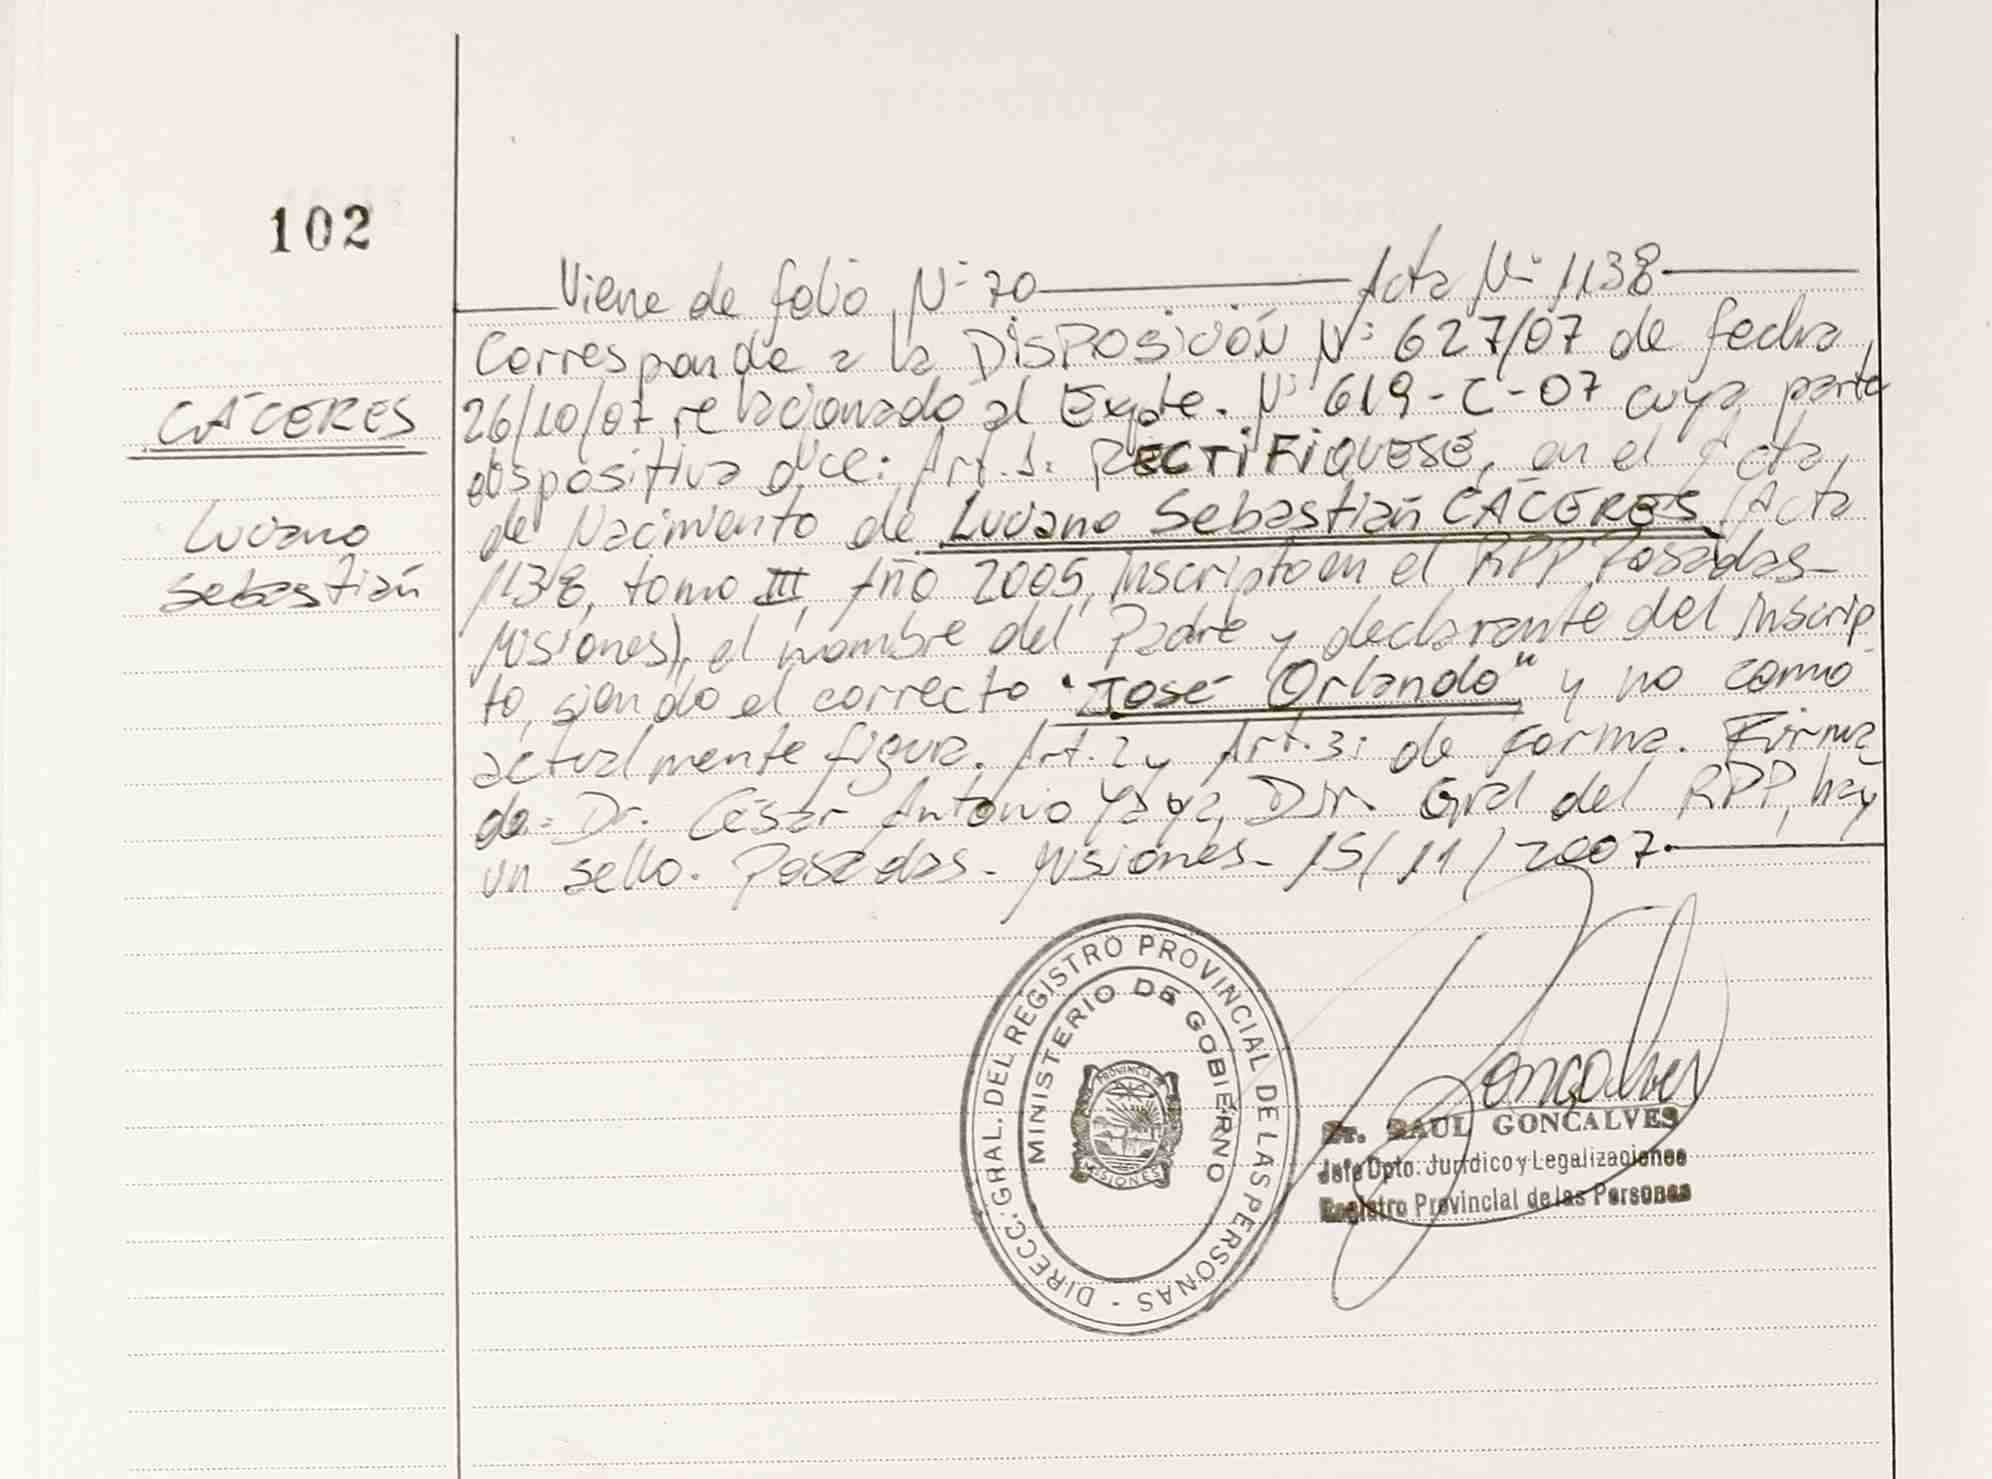 102
Viene de folio Nº 70 — Acta Nº 1138 —
Corresponde a la DISPOSICIÓN Nº 627/07 de fecha
26/10/07 relacionado al Expte. Nº 619-C-07 cuya parte
dispositiva dice: Art. 1: RECTIFIQUESE, en el Acta
de Nacimiento de Luciano Sebastián CÁCERES (Acta
1138, tomo III, Año 2005, Inscripto en el RPP Posadas-
Misiones), el nombre del Padre y declarante del inscrip
to, siendo el correcto "José Orlando" y no como
actualmente figura. Art. 2 y Art. 3: de forma. Firma
do: Dr. César Antonio Yaya, Dir. Gral del RPP, hay
un sello. Posadas - Misiones - 15/11/2007.
CÁCERES
Luciano
Sebastián
DIRECC. GRAL. DEL REGISTRO PROVINCIAL DE LAS PERSONAS -
MINISTERIO DE GOBIERNO
PROVINCIA DE
MISIONES
Goncalves
Dr. RAUL GONCALVES
Jefe Dpto. Jurídico y Legalizaciones
Registro Provincial de las Personas